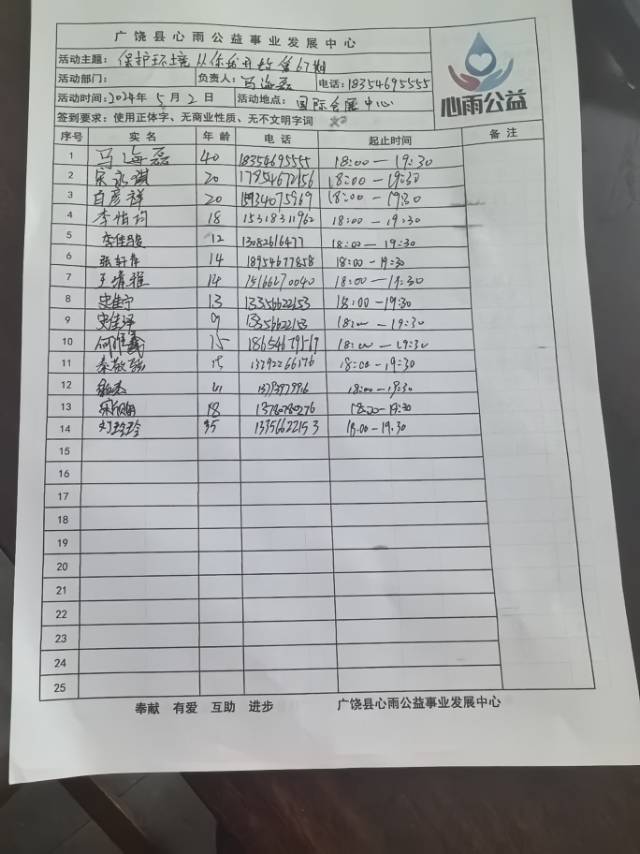 广饶县心雨公益事业发展中心
活动主题: 保护环境从你我开始第67期
活动部门: 负责人: 马海磊 电话: 18354695555
活动时间: 2024年5月2日 活动地点: 国际会展中心
心雨公益
签到要求: 使用正体字、无商业性质、无不文明字词
序号 实名 年龄 电话 起止时间 备注
1 马海磊 40 18354695555 18:00-19:30
2 宋泳淇 20 17854672156 18:00-19:30
3 自彦祥 20 18:00-19:30
4 李怡诃 18 15318311962 18:00-19:30
5 12 13082616477 18:00-19:30
6 14 18954677858 18:00-19:30
7 王靖程 14 18:00-19:30
8 史佳宁 13 13356622153 18:00-19:30
9 史佳泽 9 13356622153 18:00-19:30
10 15 18:00-19:30
11 秦敬 15 18:00-19:30
12 18:00-19:30
13 18 18:00-19:30
14 刘玲玲 35 13356622153 18:00-19:30
15
16
17
18
19
20
21
22
23
24
25
奉献 有爱 互助 进步 广饶县心雨公益事业发展中心